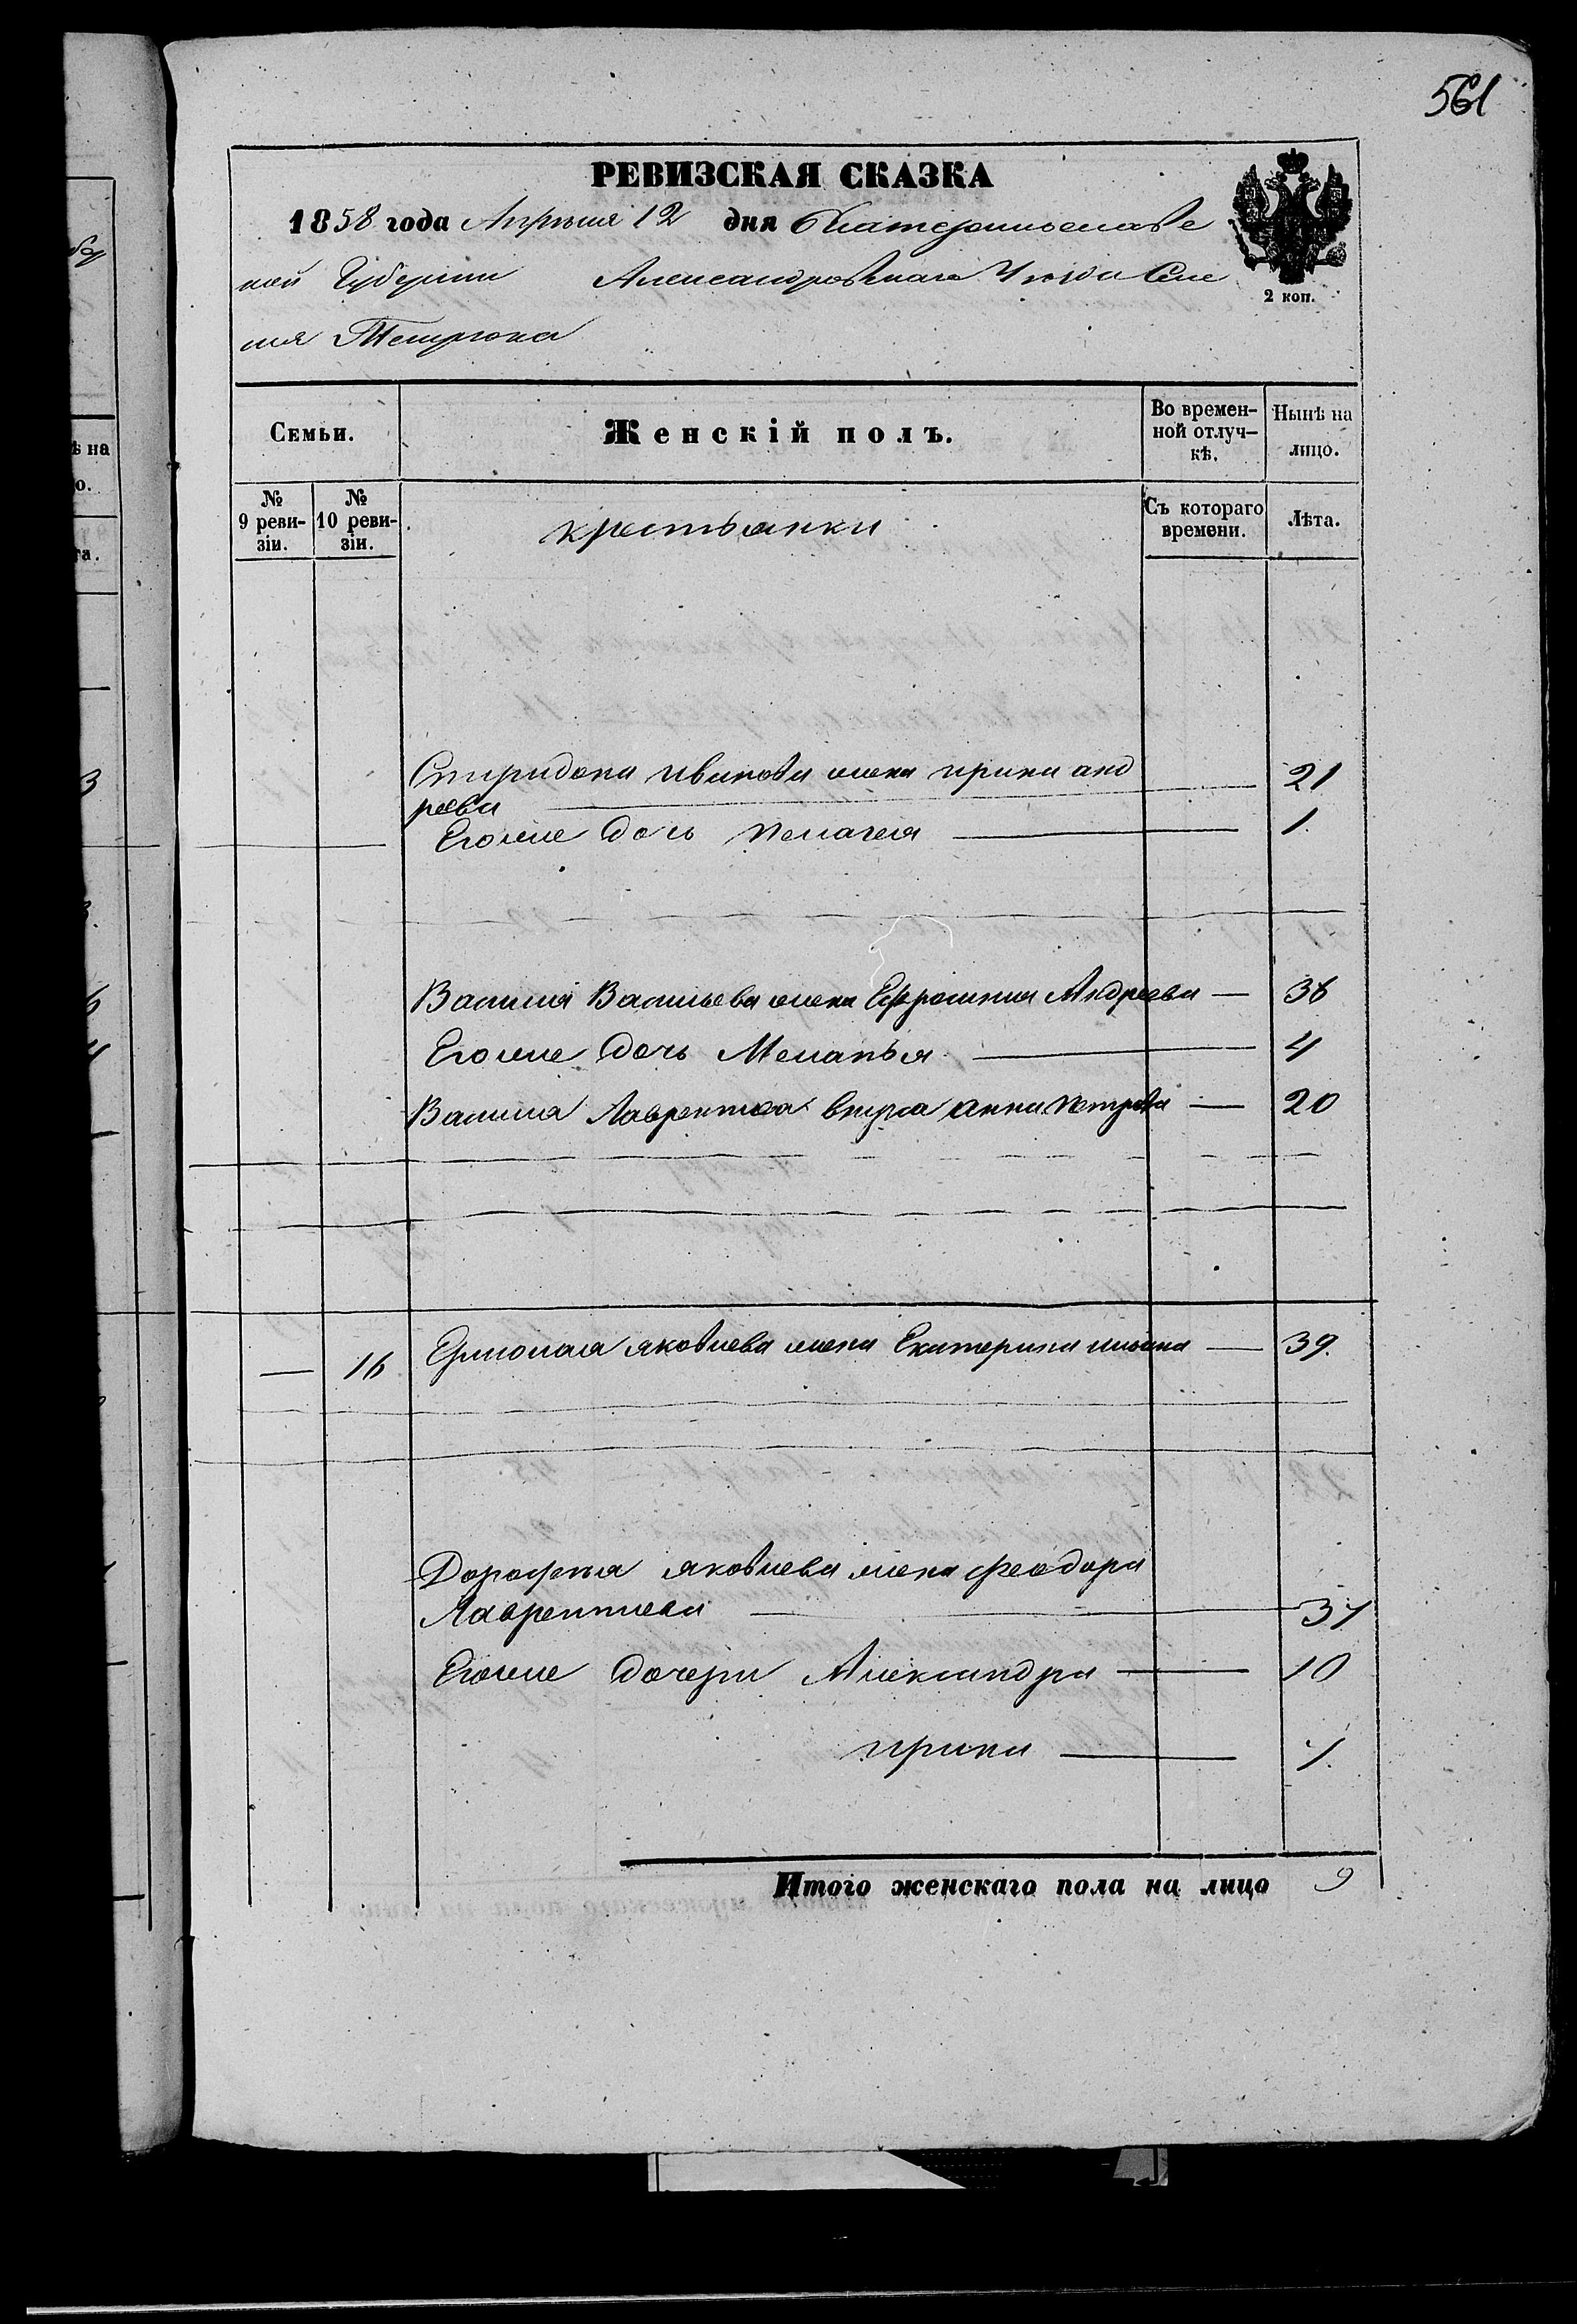 561
РЕВИЗСКАЯ СКАЗКА
1858 года Апреля 12 дня Екатеринославс
кой Губернии Александровскаго Уезда Селе
ния Темрюка
2 коп.
Семьи.
Женскій полъ.
Во времен-
ной отлуч-
кѣ.
Нынѣ на
лицо.
№
9 реви-
зіи.
№
10 реви-
зіи.
крестьянки
Съ котораго
времени.
Лѣта.
Спиридона иванова жена ирина анд
реева 21
Егоже дочь пелагея 1
Василия Васильева жена Ефросиния Андреева — 36
Егоже дочь Меланья 4
Василия Лаврентиева внука анна петрова — 20
— 16 Ермолая яковлева жена Екатерина — 39
Дорофея яковлева жена феодора
Лаврентиева 37
Егоже дочери Александра 10
ирина 7
Итого женскаго пола на лицо 9